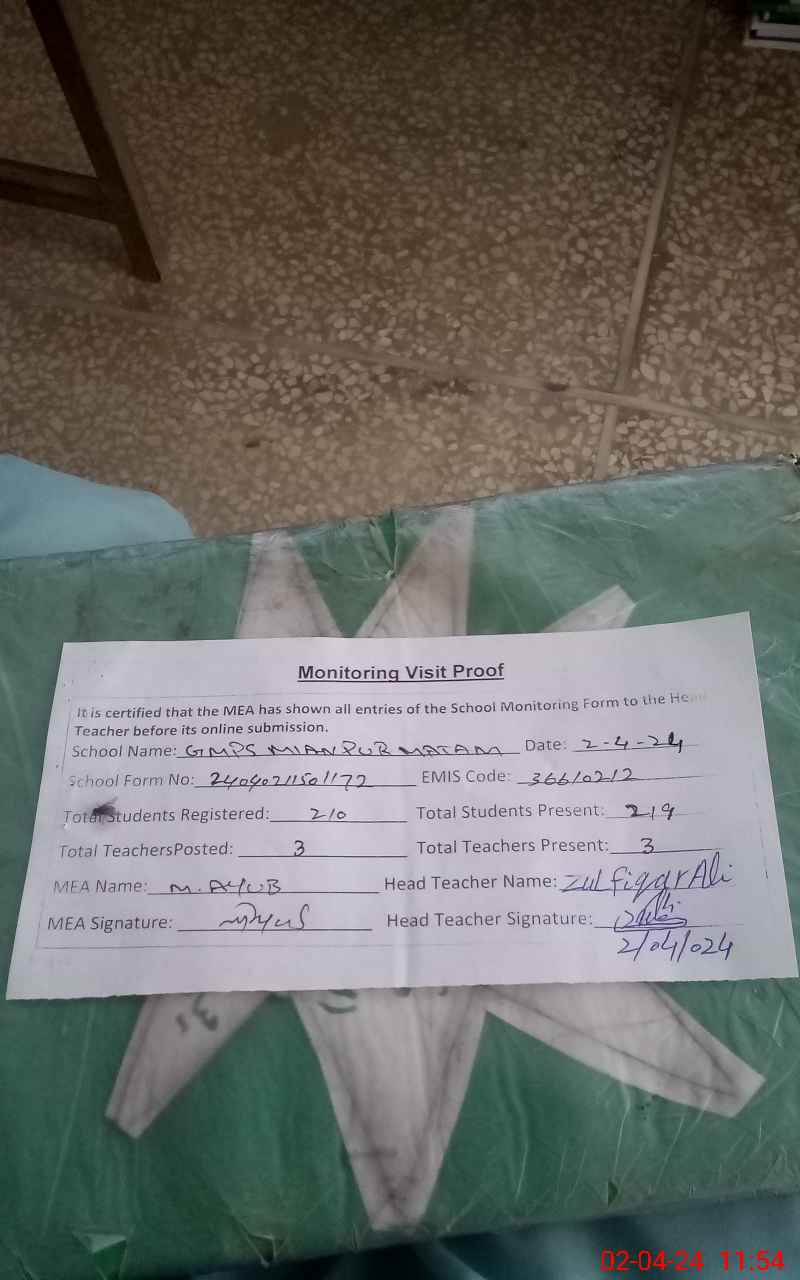 Monitoring Visit Proof
It is certified that the MEA has shown all entries of the School Monitoring Form to the Head
Teacher before its online submission.
School Name: GMPS MIANPUR MATAM Date: 2-4-24
School Form No: 24040211501172 EMIS Code: 36610212
Total Students Registered: 210 Total Students Present: 219
Total TeachersPosted: 3 Total Teachers Present: 3
MEA Name: M. AYUB Head Teacher Name: Zulfiqar Ali
MEA Signature: Head Teacher Signature:
2/04/024
02-04-24 11:54